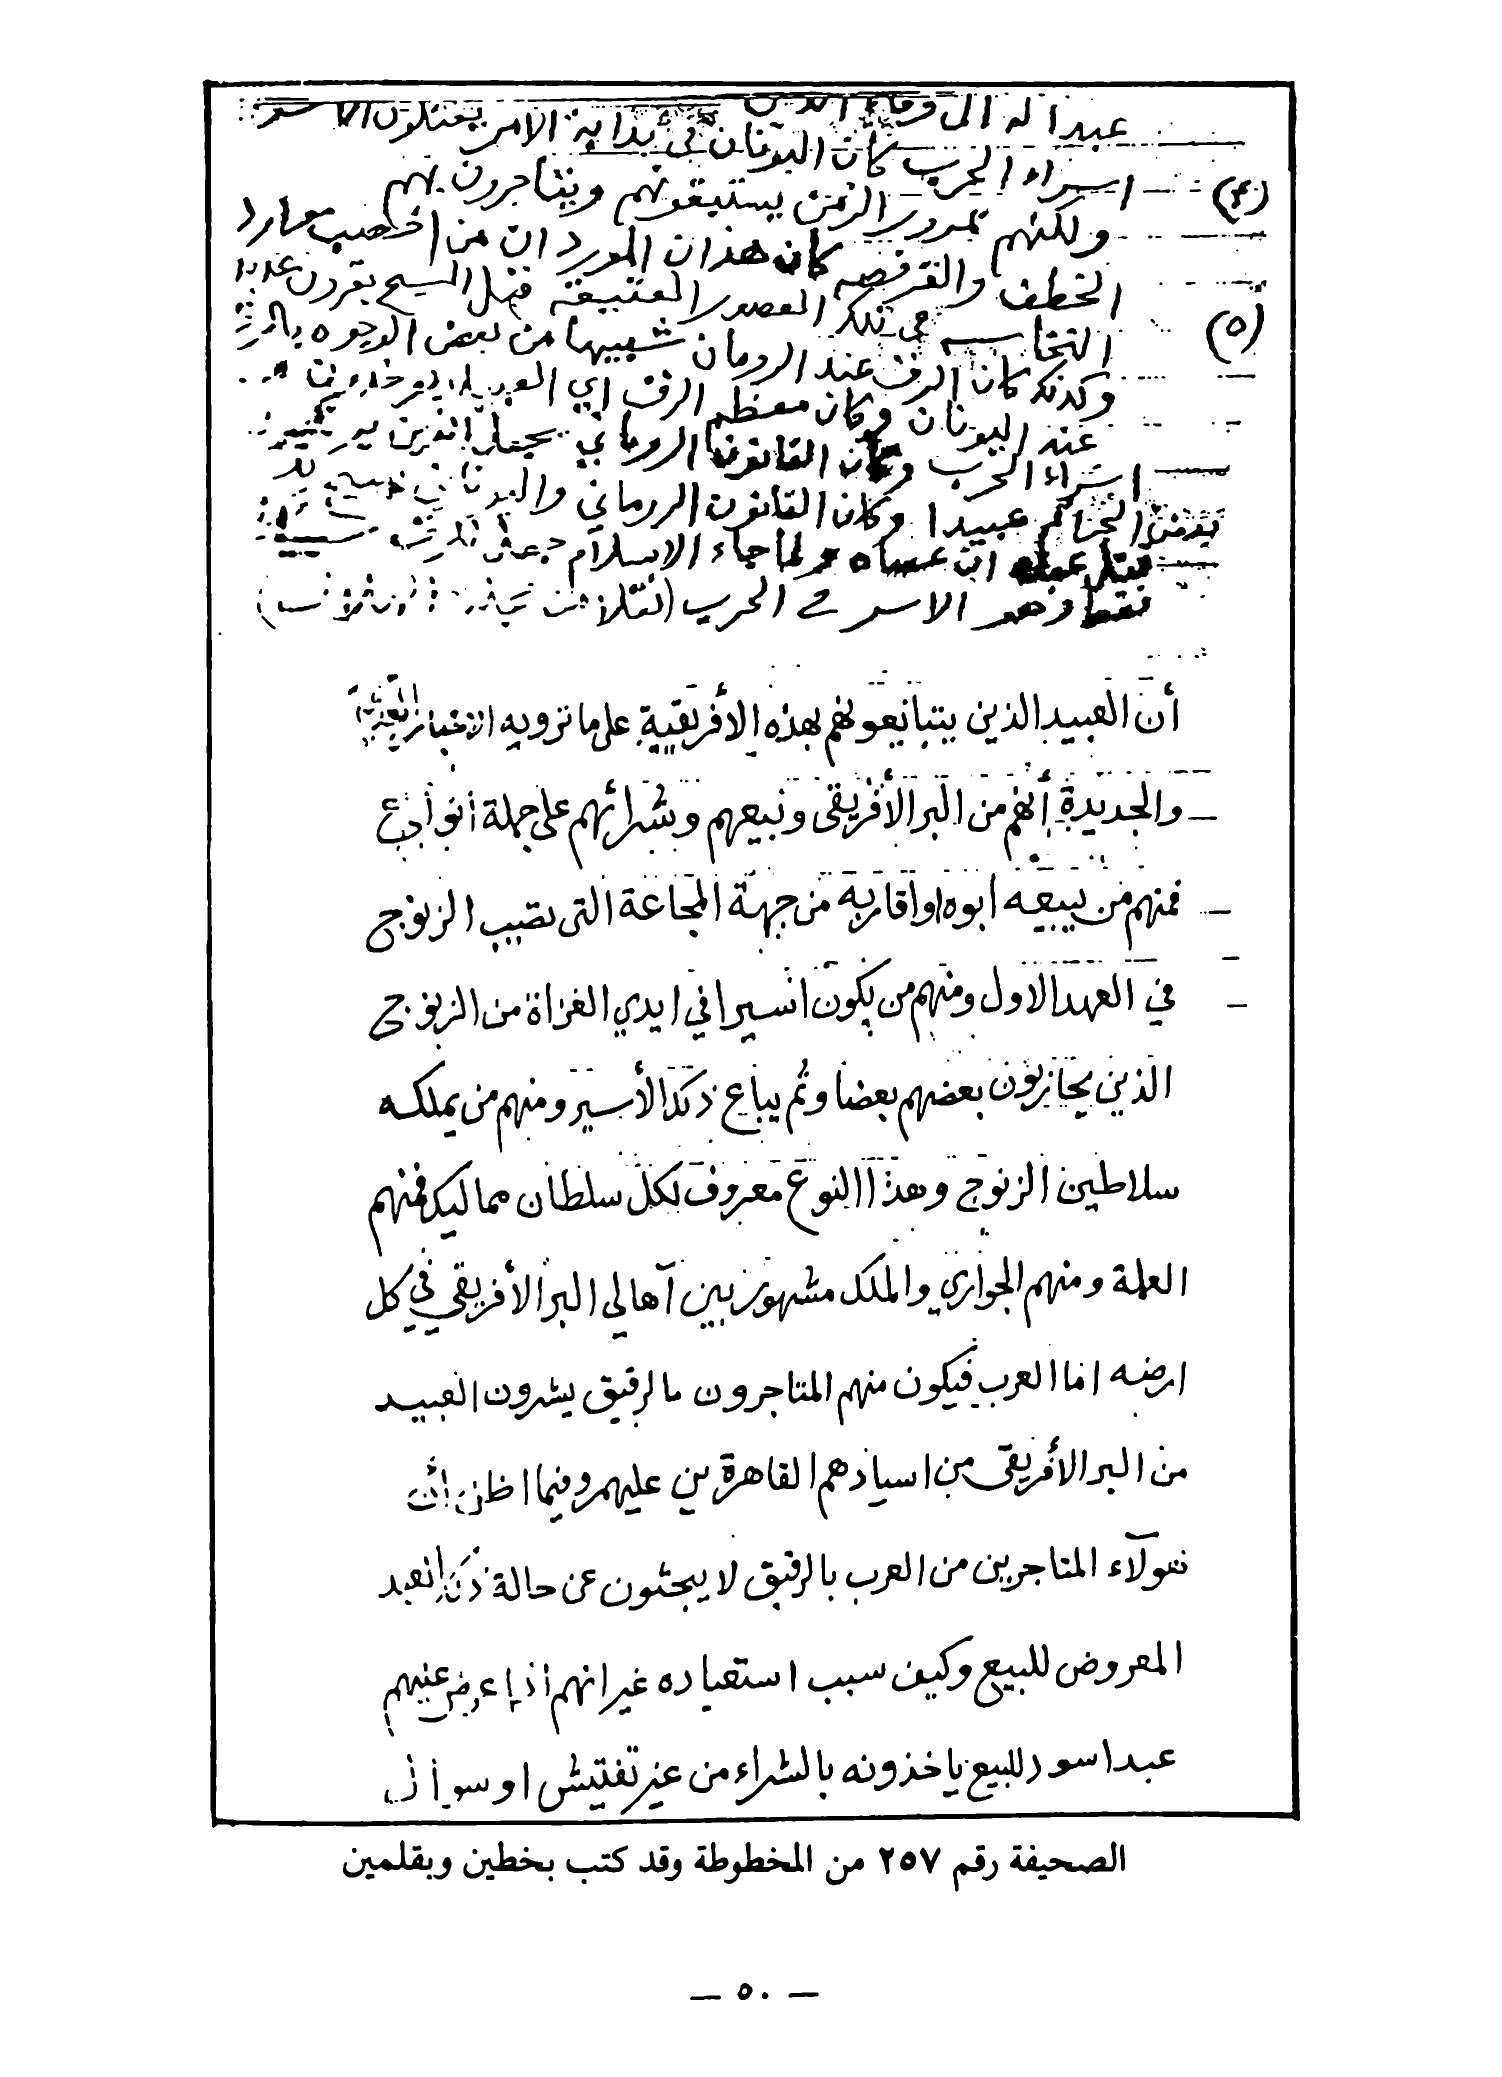 عبدا له الى وفاء الدين
اسراء الحرب كان اليونان في بداية الامر يقتلون الاسر
(٤)
ولكنهم بمرور الزمن يستبقونهم ويتاجرون بهم
الخطف والقرصه كان هذان الموردان من اخصب موارد
(٥)
النخاسه في تلك العصور العتيقة قبل المسيح بقرون عديدة
وكذلك كان الرق عند الرومان شبيها من بعض الوجوه بالرق
عند اليونان وكان معظم الرق اي العبيد يوخذون من
اسراء الحرب وكان القانون الروماني يجعل الذين يرتكبون
بعض الجرائم عبيدا وكان القانون الروماني واليوناني
ولما جاء الاسلام جعل للرق سببا
فقط وهو الاسر في الحرب (نقلا من
أن العبيد الذين يتبايعونهم بهذه الأفريقية على ما ترويه الاخبار القديمة
والجديدة إنهم من البر الأفريقى وبيعهم وشرائهم على جملة أنواع
فمنهم من يبيعه ابوه او اقاربه من جهة المجاعة التى تصيب الزنوج
في العهد الاول ومنهم من يكون اسيرا في ايدي الغزاة من الزنوج
الذين يحاربون بعضهم بعضا وثم يباع ذلك الأسير ومنهم من يملكه
سلاطين الزنوج وهذا النوع معروف لكل سلطان مماليك فمنهم
الغلمة ومنهم الجواري والملك مشهور بين آهالي البر الأفريقي في كل
ارضه اما العرب فيكون منهم المتاجرون بالرقيق يشرون العبيد
من البر الأفريقى من اسيادهم القاهرين عليهم وفيما اظن أن
هولآء المتاجرين من العرب بالرقيق لا يبحثون عن حالة ذلك العبد
المعروض للبيع وكيف سبب استعباده غير انهم اذا عرض عليهم
عبدا سود للبيع ياخذونه بالشراء من غير تفتيش او سوأال
الصحيفة رقم ٢٥٧ من المخطوطة وقد كتب بخطين وبقلمين
— ٥٠ —